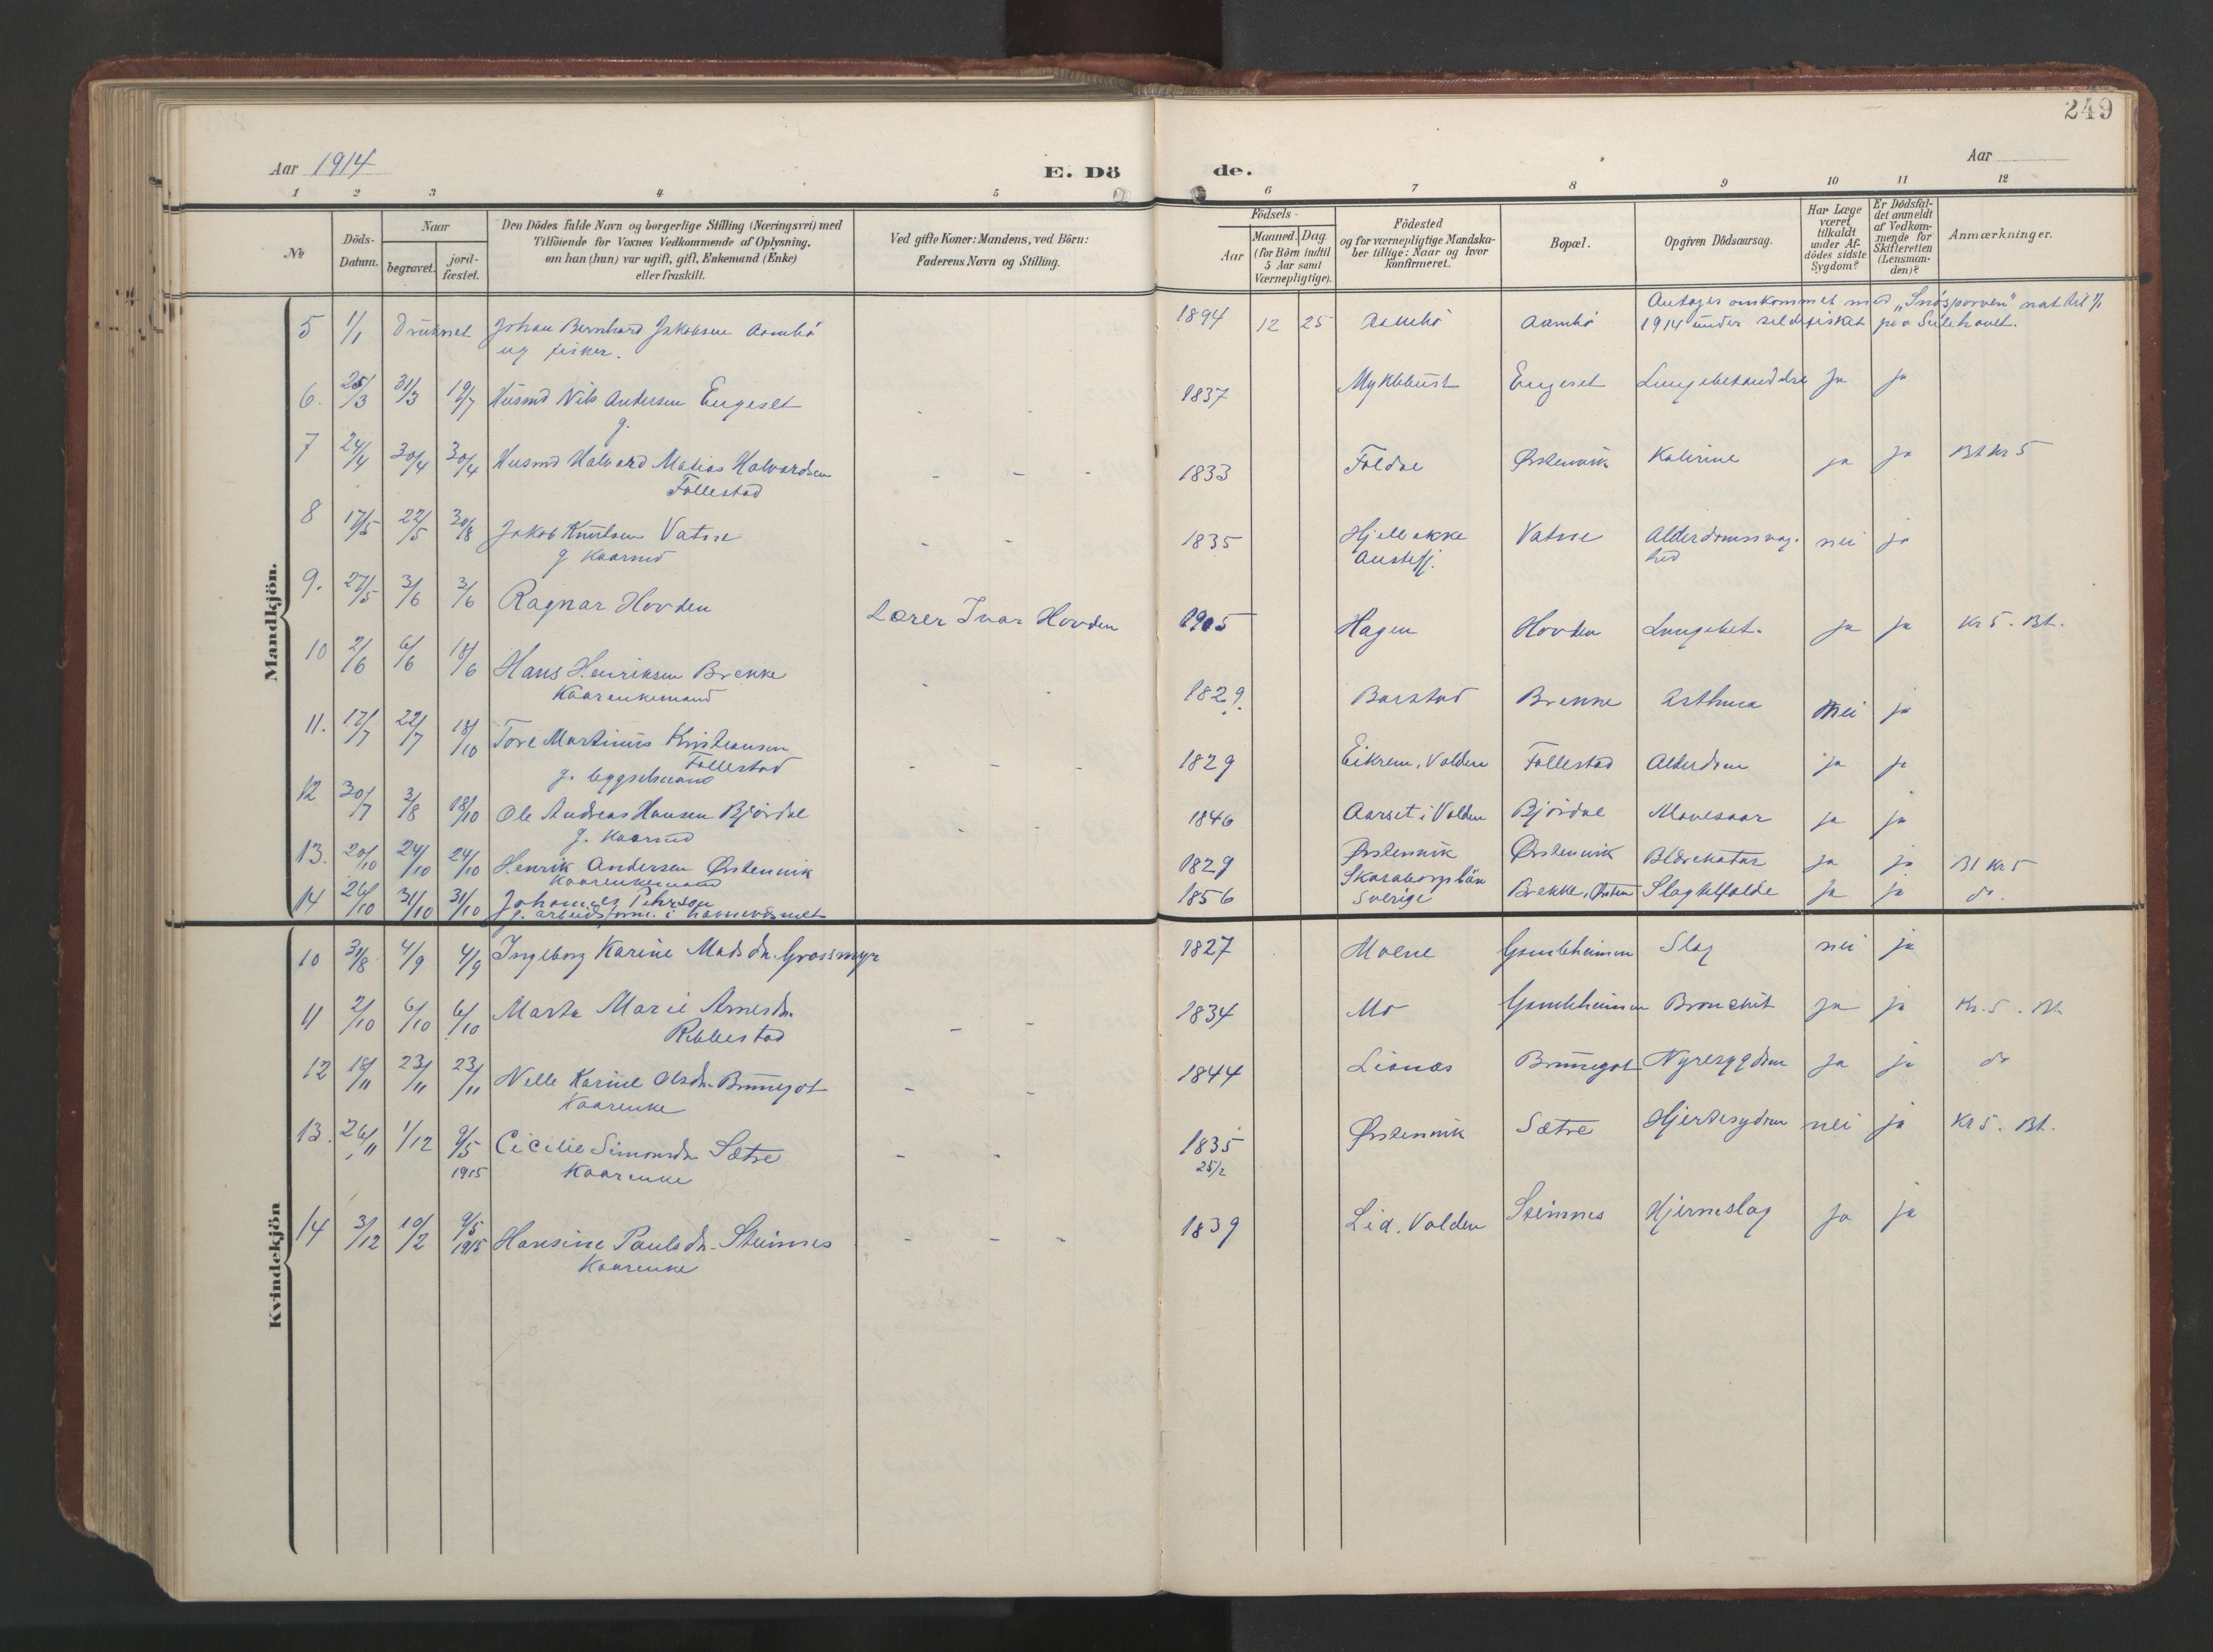 249
Aar 1914 E. Dö de. Aar
1 2 3 4 5 6 7 8 9 10 11 12
No
Döds-Datum.
Naar
begravet. jordfæstet.
Den Dödes fulde Navn og borgerlige Stilling (Næringsvei) med
Tilföiende for Voxnes Vedkommende af Oplysning,
om han (hun) var ugift, gift, Enkemand (Enke)
eller fraskilt.
Ved gifte Koner: Mandens, ved Börn:
Faderens Navn og Stilling.
Födsels-
Aar Maaned. Dag.
(for Börn indtil
5 Aar samt
Værnepligtige).
Födested
og for værnepligtige Mandska-
ber tillige: Naar og hvor
konfirmeret.
Bopæl.
Opgiven Dödsaarsag.
Har Læge
været
tilkaldt
under Af-
dödes sidste
Sygdom?
Er Dödsfal-
det anmeldt
af Vedkom-
mende for
Skifteretten
(Lensman-
den)?
Anmærkninger.
Mandkjön.
5 1/1 Druknet Johan Bernhard Jakobsen Aambö 1894 12 25 Aambö Aambö Antages omkommet med "Snøsporven" nat til 1/1
ug fisker. 1914 under sildfisket paa Sulehavet.
6. 25/3 31/3 19/7 Husmd Nils Andersen Engeset - - 1837 Myklebust Engeset Lungebetændelse ja ja
g.
7 24/4 30/4 30/4 Husmd Halvard Matias Halvardsen - - - 1833 Foldal Ørstenvik Katirine ja ja Bt kr 5
Follestad
8 17/5 22/5 30/8 Jakob Knutsen Vatne - - 1835 Hjellbakke Vatne Alderdomssvag- nei ja
g Kaarmd Austefj. hed
9. 27/5 3/6 3/6 Ragnar Hovden Lærer Ivar Hovden 1905 Hagen Hovden Lungebet. ja ja kr 5. Bt.
10 2/6 6/6 18/6 Hans Henriksen Brekke - - 1829 Barstad Brekke Asthma nei ja
Kaarenkemand
11. 17/7 22/7 18/10 Tore Martinus Kristiansen - - - 1829 Eikrem, Volden Follestad Alderdom ja ja
Follestad
g. byggselmand
12 30/7 3/8 18/10 Ole Andreas Hansen Bjørdal - - 1846 Aarset i Volden Bjørdal Mavesaar ja ja
g. Kaarmd
13. 20/10 24/10 24/10 Henrik Andersen Ørstenvik 1829 Ørstenvik Ørstenvik Blærekatar ja ja Bt kr 5
Kaarenkemand
14 26/10 31/10 31/10 Johannes Pehrson 1856 Skaraborgs län Sverige Brekke, Ørsten Slagtilfælde ja ja do.
g. arbeidsform. i havnevæsnet
Kvindekjön
10 31/8 4/9 4/9 Ingeborg Karine Madsdn. Grossmyr 1827 Moene Gamleheimen Slag nei ja
11 2/10 6/10 6/10 Marte Marie Arnesdn. - - 1834 Mo Gamleheimen Bronchit ja ja Kr. 5. Bt.
Ribbestad
12 18/11 23/11 23/11 Nelle Karine Olsdn. Brungot - - 1844 Lianes Brungot Nyresygdom ja ja do
Kaarenke
13. 26/11 1/12 9/5 1915 Cicilie Simonsdn Sætre - - 1835 25/2 Ørstenvik Sætre Hjertesygdom nei ja Kr 5. Bt.
Kaarenke
14 3/12 10/2 9/5 1915 Hansine Paulsdn. Steinnes - - - 1839 Lid. Volden Steinnes Hjerneslag ja ja
Kaarenke